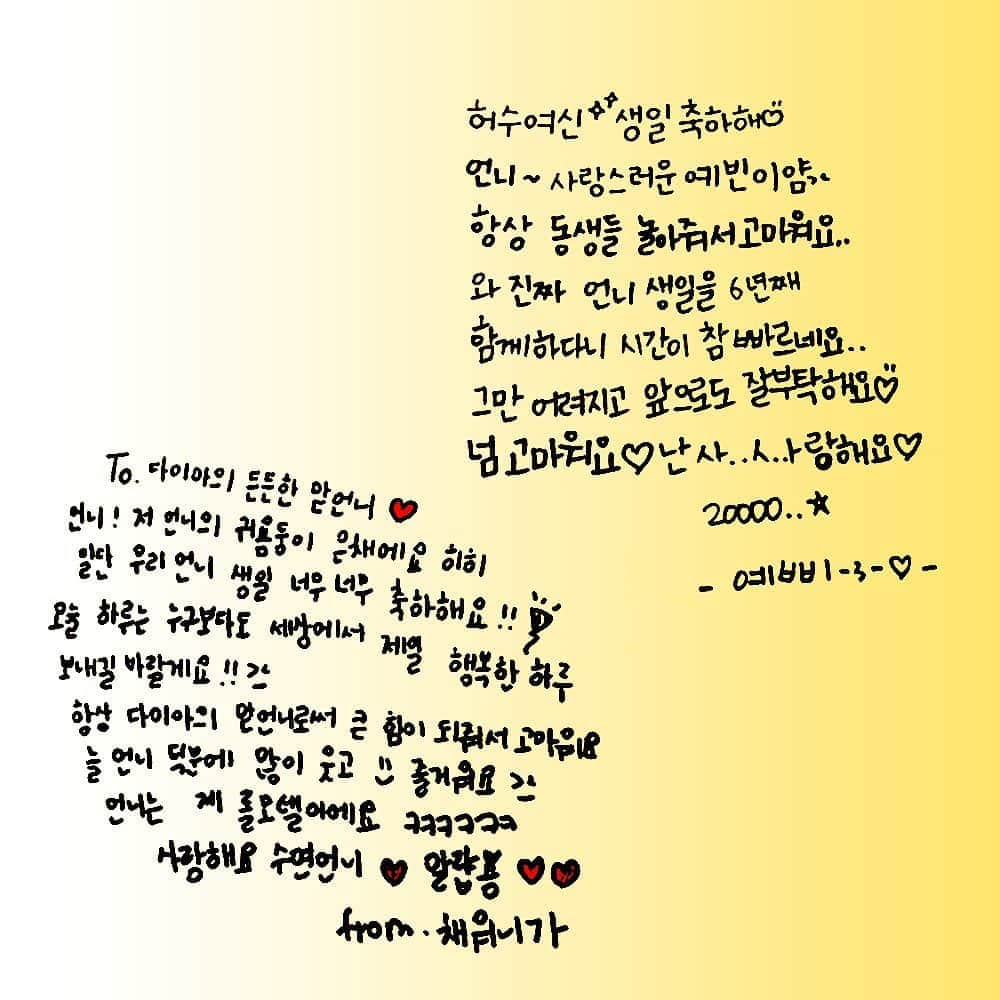 허수여신 생일 축하해♡
언니~ 사랑스러운 예빈이얌..
항상 동생들 놀아줘서 고마워요..
와 진짜 언니 생일을 6년째
함께하다니 시간이 참 빠르네요..
그만 어려지고 앞으로도 잘부탁해요♡
넘 고마워요♡난 사..ㅅ..ㅏ랑해요♡
20000..★
- 예쁘비-3-♡-
To. 다이아의 든든한 맏언니 ♥
언니! 저 언니의 귀욤둥이 은채에요 히히
일단 우리 언니 생일 너무 너무 축하해요!!
오늘 하루는 누구보다도 세쌍에서 제일 행복한 하루
보내길 바랄게요!!
항상 다이아의 맏언니로써 큰 힘이 되줘서 고마워요
늘 언니 덕분에 많이 웃고 즐거워요
언니는 제 롤모델이에요 ㅋㅋㅋㅋㅋㅋ
사랑해요 수연언니 ♥ 알랍용 ♥♥
from. 채워니가